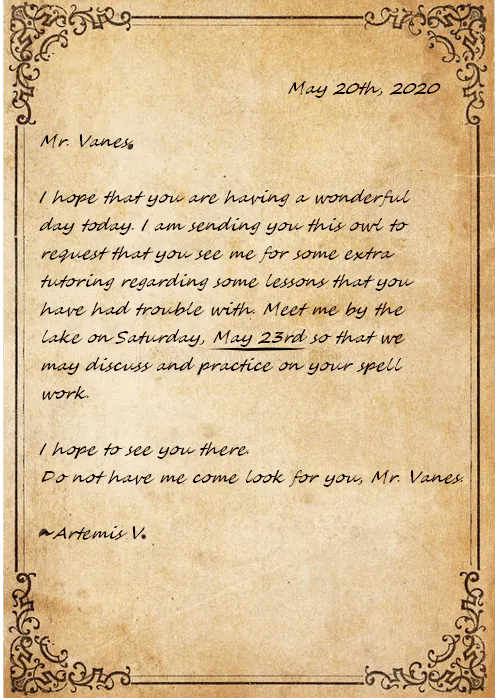 May 20th, 2020
Mr. Vanes,
I hope that you are having a wonderful
day today. I am sending you this owl to
request that you see me for some extra
tutoring regarding some lessons that you
have had trouble with. Meet me by the
lake on Saturday, May 23rd so that we
may discuss and practice on your spell
work.
I hope to see you there.
Do not have me come look for you, Mr. Vanes.
~Artemis V.